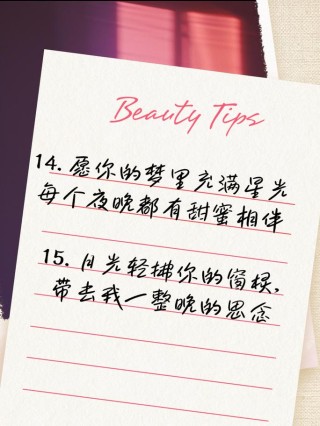 Beauty Tips
14. 愿你的梦里充满星光
每个夜晚都有甜蜜相伴
15. 月光轻拂你的窗棂,
带去我一整晚的思念